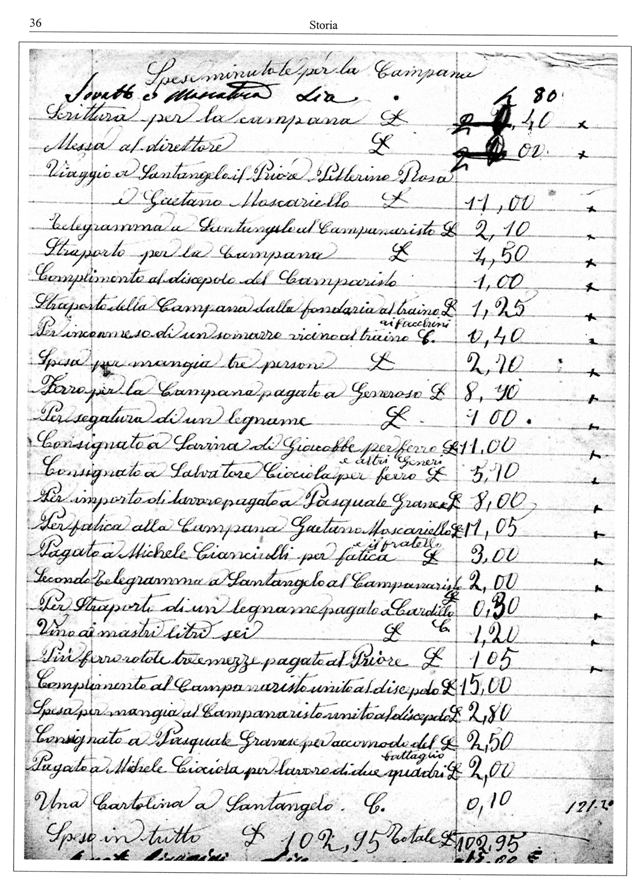 36
Storia
Spese minutate per la Campana
Lia 80
Scrittura per la campana £ 2 ,40 x
Messa al direttore £ 2 00 x
Viaggio a Santangelo il Priore Pellerino Rosa
e Gaetano Moscariello £ 11,00 x
Telegramma a Santangelo al Campanaristo £ 2,10 x
Straporto per la Campana £ 4,50 x
Complimento al discepolo del Camparisto 1,00 x
Straporto della Campana dalla fondaria al traino £ 1,25 x
ai facchini
Per incommeso di un somarro vicino al traino C. 0,40 x
Spesa per mangia tre persone £ 2,70 x
Ferro per la Campana pagato a Generoso £ 8,70 x
Per segatura di un legname £ 1 00.
Consignato a Savina di Giacobbe per ferro £ 11,00
e altri Generi
Consignato a Salvatore Ciociola per ferro £ 5,70
Per importo di lavoro pagato a Pasquale Granese £ 8,00
Per fatica alla Campana Gaetano Moscariello £ 11,05
e il fratello
Pagato a Michele Cianciulli per fatica £ 3,00
Secondo telegramma a Santangelo al Campanaristo £ 2,00
Per Straporto di un legname pagato a Cardillo C. 0,30
Vino ai mastri litri sei £ 1,20
Più ferro rotole tre e mezze pagato al Priore £ 1 05
Complimento al Campanaristo unito al discepolo £ 15,00
Spesa per mangia al Campanaristo unito al discepolo £ 2,80
Consignato a Pasquale Granese per accomodo del £ 2,50
battaglio
Pagato a Michele Ciociola per lavoro di due quadri £ 2,00
Una Cartolina a Santangelo. C. 0,10
Speso in tutto £ 102,95 Totale £ 102,95